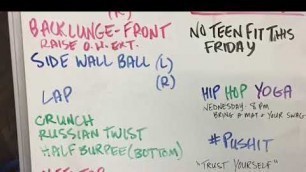 (R)
BACK LUNGE-FRONT
RAISE O.H. EXT.
SIDE WALL BALL (L)
(R)
LAP
CRUNCH
RUSSIAN TWIST
HALF BURPEE (BOTTOM)
NO TEEN FIT THIS
FRIDAY
HIP HOP YOGA
WEDNESDAY 8 PM
BRING A MAT + YOUR SWAG
#PUSHIT
"TRUST YOURSELF"